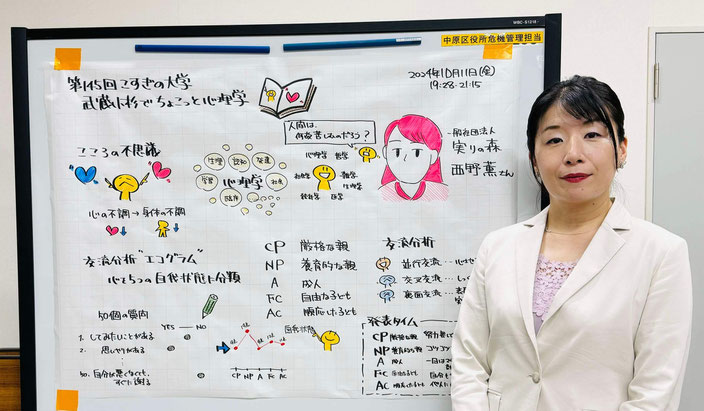 MBC-S1218
中原区役所危機管理担当
第145回こすぎの大学
武蔵小杉でちょこっと心理学
2024年10月11日(金)
19:28-21:15
人間は、
何故苦しみのだろう?
一般社団法人
実りの森
西野薫さん
こころの不思議
心の不調→身体の不調
生理
認知
発達
学習
心理学
社会
臨床
心理学
哲学
医学
交流分析"エゴグラム"
心を5つの自我状態に分類
CP 厳格な親
NP 養育的な親
A 成人
FC 自由な子ども
AC 順応した子ども
交流分析
並行交流…
交叉交流…
裏面交流…
50個の質問
YES — NO
1. してみたいことがある
2. 思いやりがある
50. 自分が悪くなくても、
すぐに謝る
自我状態
CP NP A FC AC
発表タイム
CP 厳格な親
NP 養育的な親
A 成人
FC 自由な子ども
AC 順応した子ども